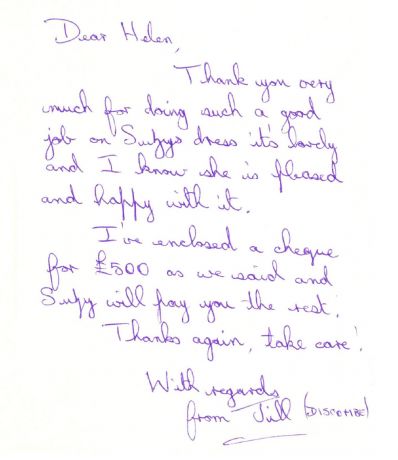 Dear Helen,
Thank you very
much for doing such a good
job on Suzys dress it's lovely
and I know she is pleased
and happy with it.
I've enclosed a cheque
for £500 as we said and
Suzy will pay you the rest.
Thanks again, take care!
With regards
from Jill (DISCOMBE)